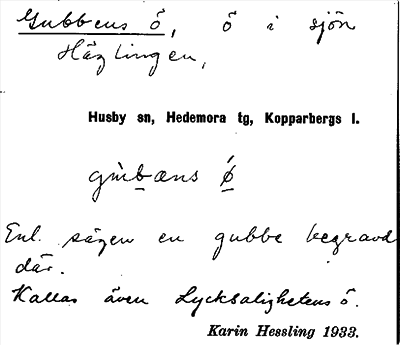 Gubbens ö, ö i sjön
Häglingen,
Husby sn, Hedemora tg, Kopparbergs l.
gu̇b̲æns ǿ̲
Enl. sägen en gubbe begravd
där.
Kallas även Lycksalighetens ö.
Karin Hessling 1933.